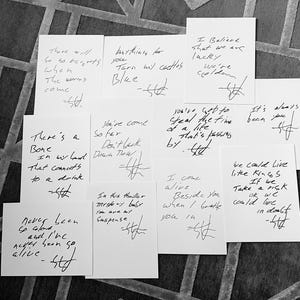 There will
be no regrets
when
The worms
come
Anything for
you
Turn my coattails
Blue
I Believe
That we are
lucky
we're
golden
There's a
Bone
In my hand
That connects
to a drink
You've come
So far
Don't look
Down now
You've got to
steal the time
of a life
That's passing
by
It's always
been you
Never been
so alone
and I've
never been so
alive
In this thriller
mystery baby
You are my
Suspense
I come
alive
Beside you
when I breathe
you in
We could live
like Kings
if we
Take a risk
or we
could live
in doubt